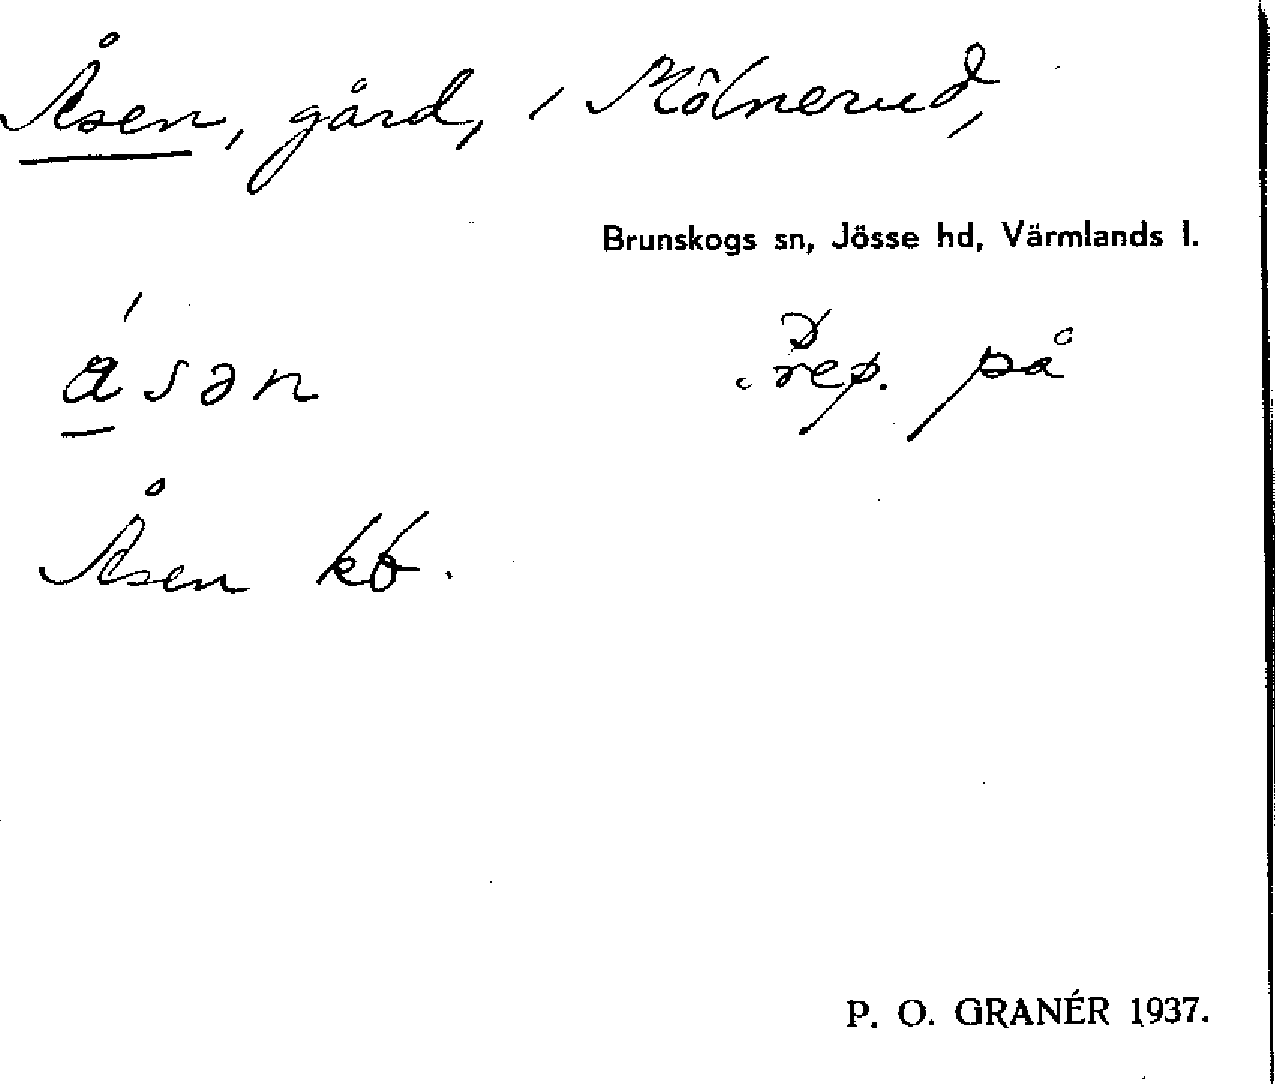 Åsen, gård, i Mölnerud,
Brunskogs sn, Jösse hd, Värmlands l.
åsən prep. på
Åsen kb.
P. O. GRANÉR 1937.